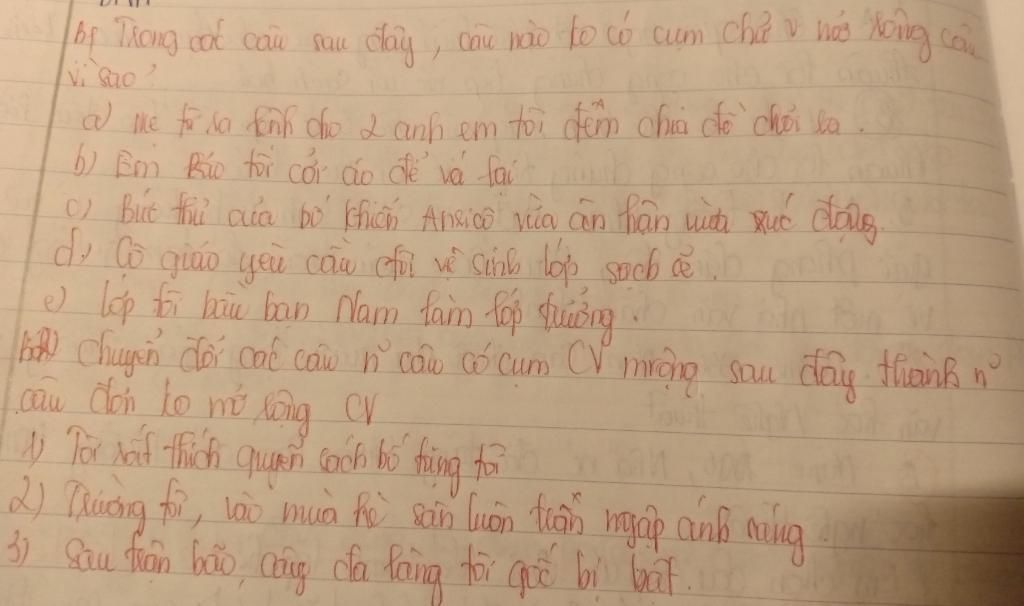 b, Trong các câu sau đây, câu nào ko có cụm chủ v mở rộng câu
vì sao?
a) Mẹ tôi ra lệnh cho 2 anh em tôi đem chia đồ chơi ra.
b) Em bảo tôi cởi áo để vá lại
c) Bức thư của bố khiến Anricô vừa ân hận vừa xúc động.
d, Cô giáo yêu cầu đội vệ sinh lớp sạch sẽ.
e) lớp tôi bầu bạn Nam làm lớp trưởng.
chuyển đổi các câu n~ câu có cụm CV mrộng sau đây thành n~
câu đơn ko mở rộng CV
1) Tôi rất thích quyển sách bố tặng tôi
2) Trường tôi, vào mùa hè sân luôn tràn ngập ánh nắng.
3) Sau trận bão, cây đa làng tôi gốc bị bật.